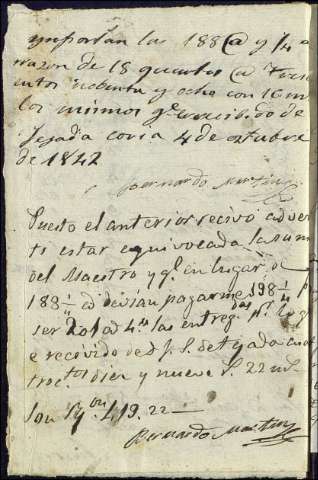 ymportan las 188 @ y 1/4 a
rrazon de 18 quartos @ Tresci
entos nobenta y ocho con 16 m
los mismos q.e recivido de
Tejadia coria 4 de octubre
de 1842
Bernardo Martin
Puesto el anterior recivo adver
ti estar equivocada la suma
del Maestro y q.e en lugar de
188 @ devian pagarme 198
ser las entreg.das p.r lo q.e
e recivido de d. J. S. de Tejada cua
troc.tos diez y nueve r.s 22 m.s
Son R.s von 419.22
Bernardo Martin